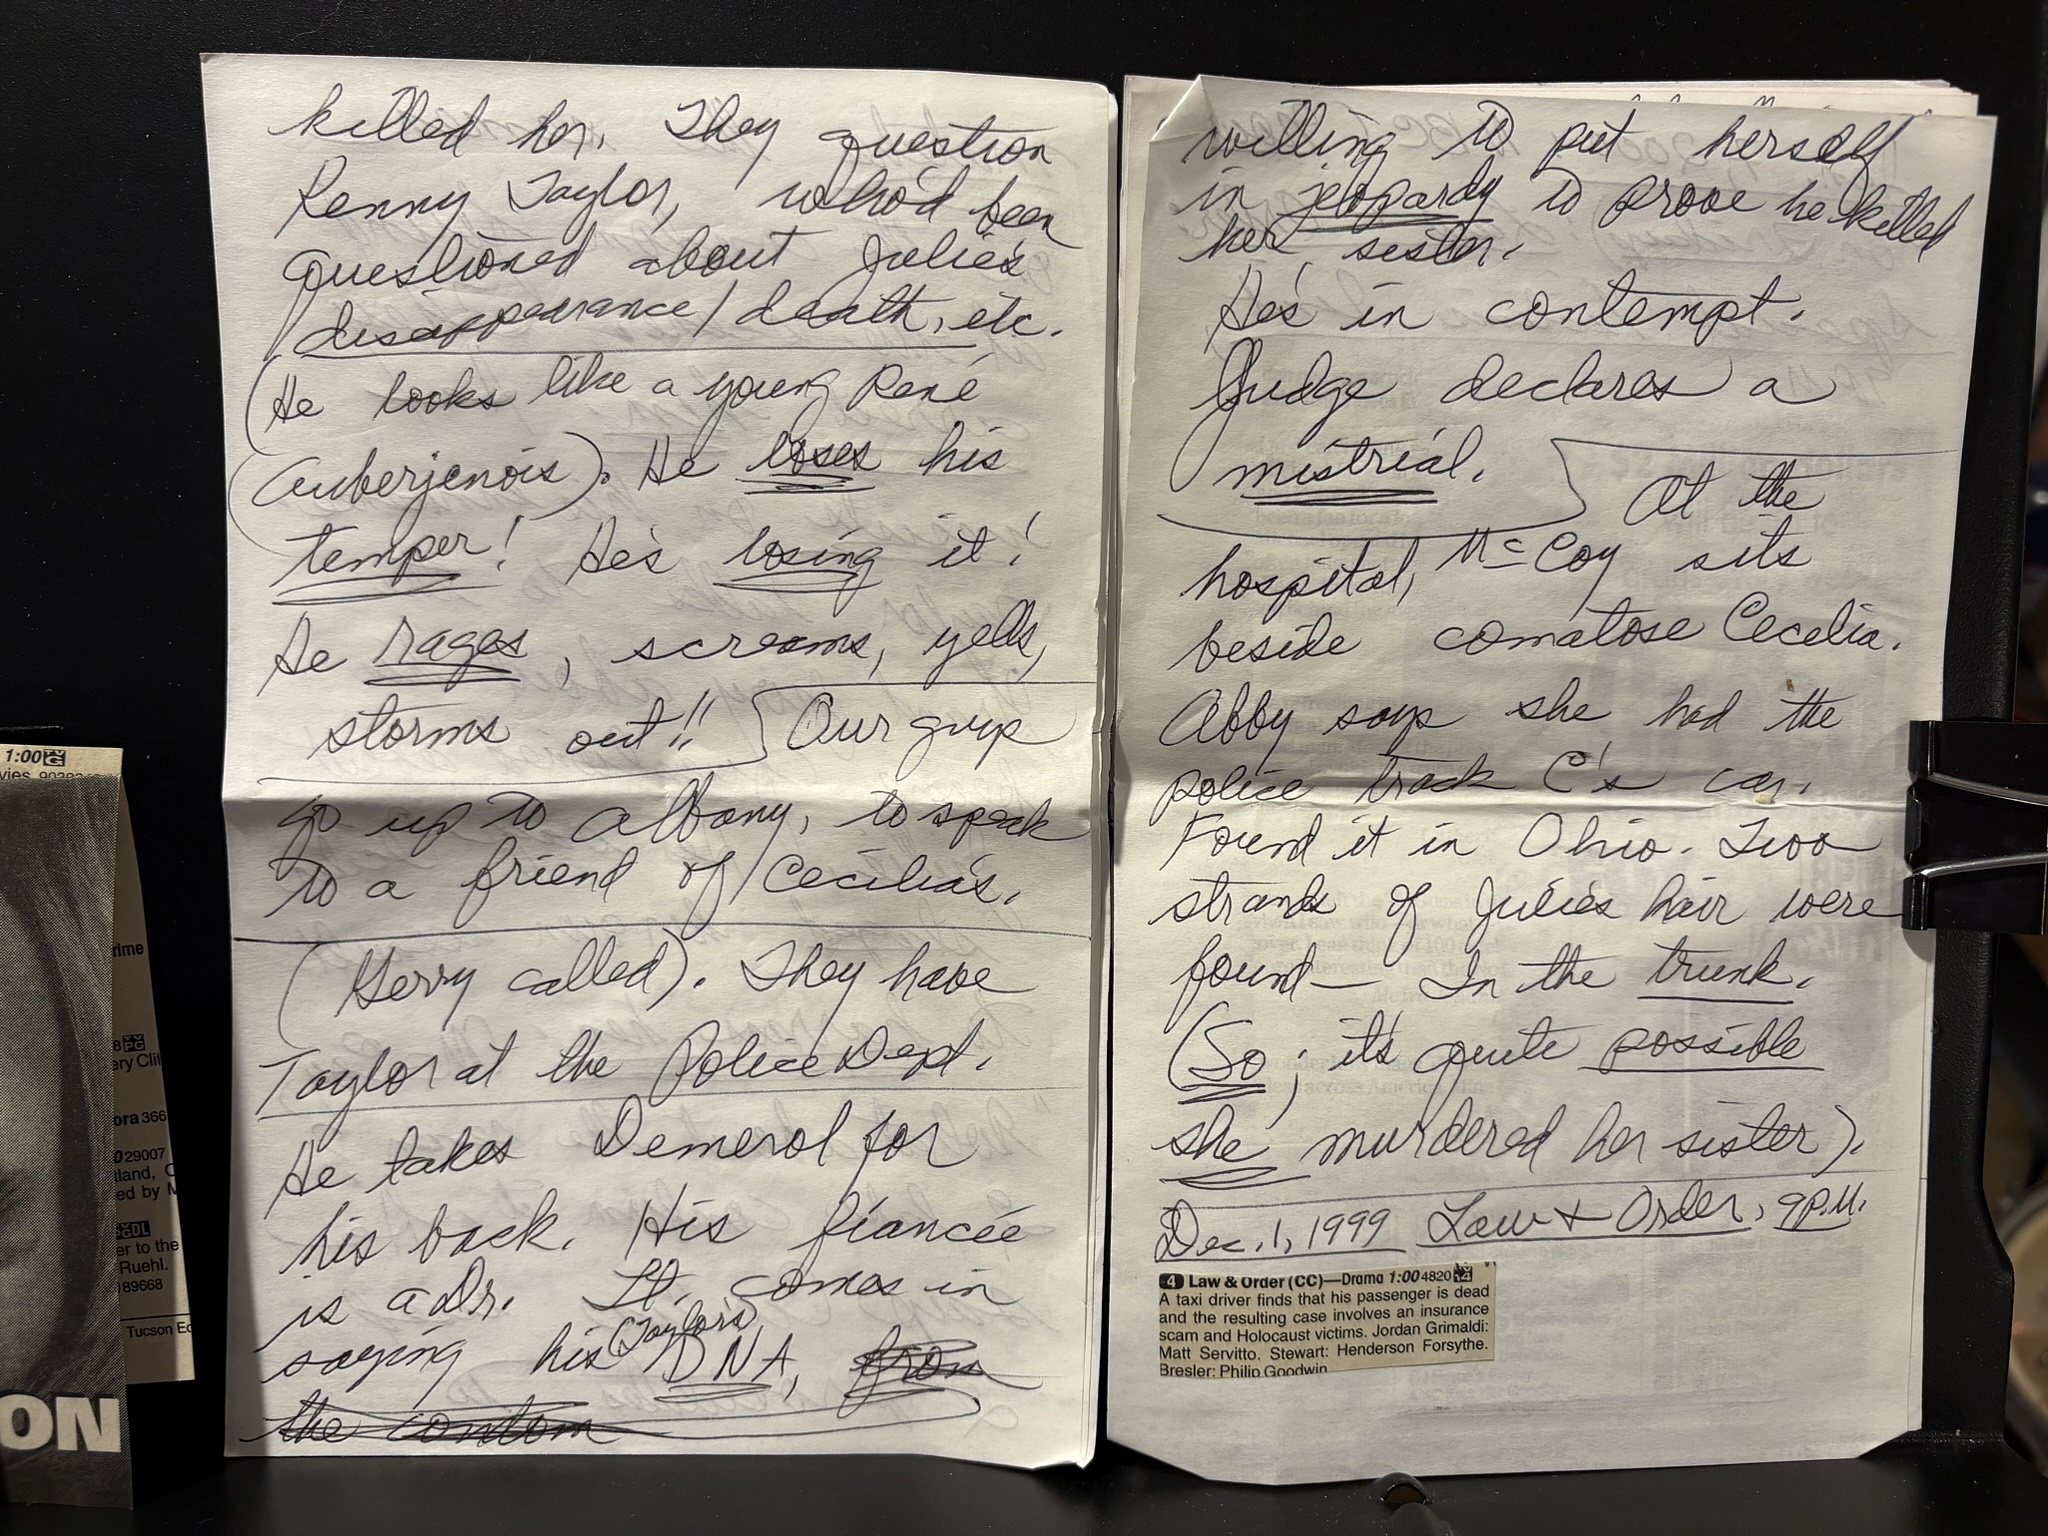 killed her. They question
Kenny Taylor, who'd been
questioned about Julie's
disappearance/death, etc.
(He looks like a young René
Auberjenois). He loses his
temper! He's losing it!
He rages, screams, yells,
storms out!! Our guys
go up to Albany, to speak
to a friend of Cecilia's.
(Gerry called). They have
Taylor at the Police Dept.
He takes Demerol for
his back. His fiancée
is a Dr. Lt. comes in
saying his (Taylor's) DNA, from
the condom
willing to put herself
in jeopardy to prove he killed
her sister.
He's in contempt.
Judge declares a
mistrial. At the
hospital, McCoy sits
beside comatose Cecelia.
Abby says she had the
police track C's car.
Found it in Ohio. Two
strands of Julie's hair were
found— In the trunk.
(So, it's quite possible
she murdered her sister).
Dec. 1, 1999 Law & Order, 9 P.M.
4 Law & Order (CC)—Drama 1:00 4820 14
A taxi driver finds that his passenger is dead
and the resulting case involves an insurance
scam and Holocaust victims. Jordan Grimaldi:
Matt Servitto. Stewart: Henderson Forsythe.
Bresler: Philip Goodwin
1:00 TV G
vies
rime
8 PG
ery Clif
ora 366
29007
tland,
ed by M
DL
er to the
Ruehl.
189668
Tucson Ed
ON